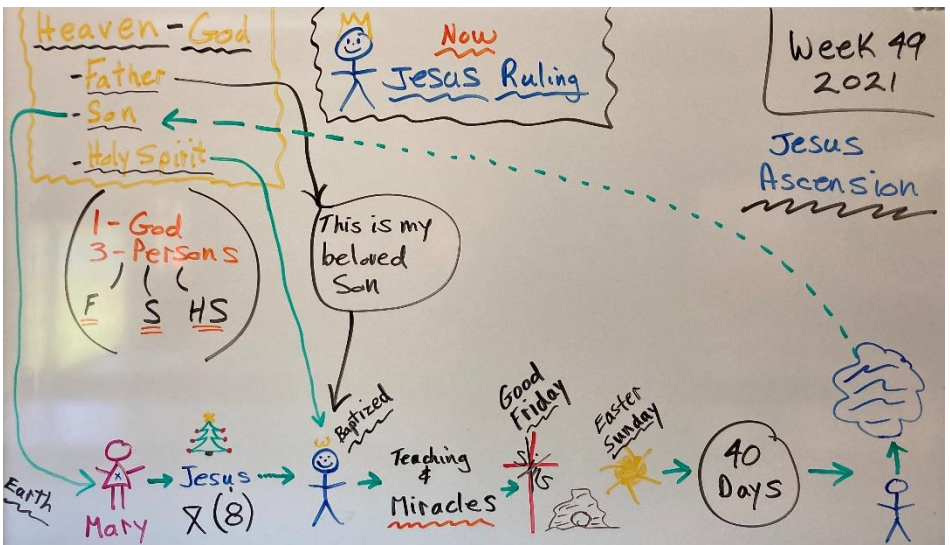 Heaven - God
- Father
- Son
- Holy Spirit
1 - God
3 - Persons
F S HS
Now
Jesus Ruling
Week 49
2021
Jesus
Ascension
This is my
beloved
Son
Earth
Mary
Jesus
(8)
Baptized
Teaching
&
Miracles
Good
Friday
Sins
Easter
Sunday
40
Days